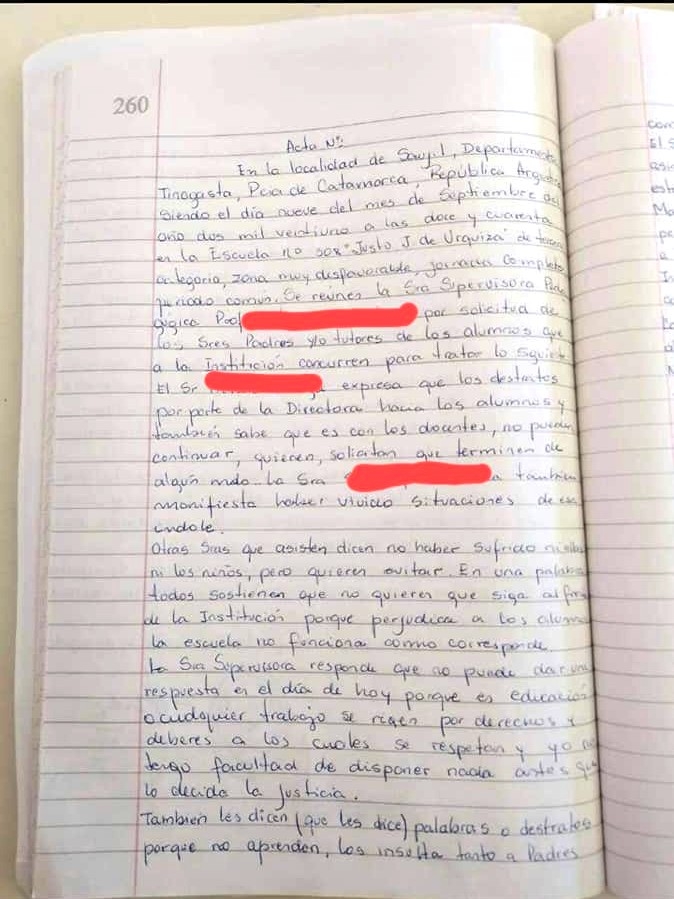 260
Acta Nº:
En la localidad de Saujil, Departamento
Tinogasta, Pcia de Catamarca, República Argentina
Siendo el día nueve del mes de Septiembre del
año dos mil veintiuno a las doce y cuarenta
en la Escuela nº 308 "Justo J de Urquiza" de tercera
categoria, zona muy desfavorable, jornada completa
periodo comun. Se reúnen la Sra Supervisora Peda
gógica Prof por solicitud de
los Sres Padres y/o tutores de los alumnos que
a la Institición concurren para tratar lo siguiente
El Sr expresa que los destratos
por parte de la Directora hacia los alumnos y
también sabe que es con los docentes, no pueden
continuar, quieren, solicitan que terminen de
algún modo. La Sra a también
manifiesta haber vivido situaciones de esa
indole.
Otras Sras que asisten dicen no haber sufrido ni ellas
ni los niños, pero quieren evitar. En una palabra
todos sostienen que no quieren que siga al frente
de la Institución porque perjudica a los alumnos
la escuela no funciona como corresponde.
La Sra Supervisora responde que no puede dar una
respuesta en el día de hoy porque en educación
o cualquier trabajo se rigen por derechos y
deberes a los cuales se respetan y yo no
tengo facultad de disponer nada antes que
lo decida la justicia.
Tambien les dicen (que les dice) palabras o destratos
porque no aprenden, los insulta tanto a Padres